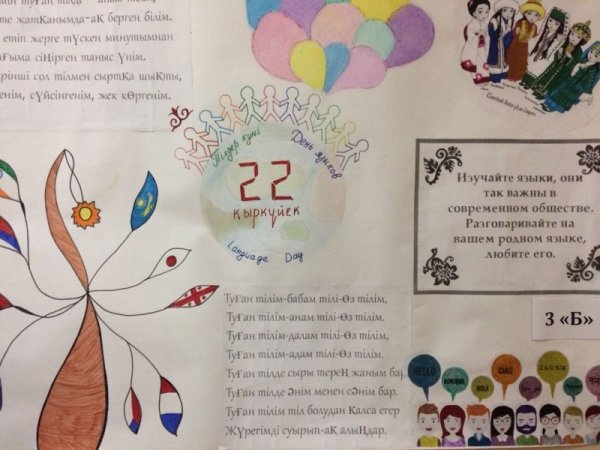 туған тілді
жатҚанымда-аҚ берген білім.
етіп жерге түскен минутымнан
сіңірген таныс үнім.
сол тілмен сыртҚа шыҚты,
сүйсінгенім, жек көргенім.
Central Asia plus Japan
Тілдер күні
День языков
22
қыркүйек
Language Day
Изучайте языки, они
так важны в
современном обществе.
Разговаривайте на
вашем родном языке,
любите его.
3 «Б»
Туған тілім-бабам тілі-өз тілім,
Туған тілім-анам тілі-өз тілім.
Туған тілім-далам тілі-өз тілім,
Туған тілім-адам тілі-өз тілім.
Туған тілде сыры терең жаным бар,
Туған тілде әнім менен сәнім бар.
Туған тілім тіл болудан Қалса егер
Жүрегімді суырып-аҚ алыңдар.
HELLO
BONJOUR
HOLA
CIAO
こんにちは